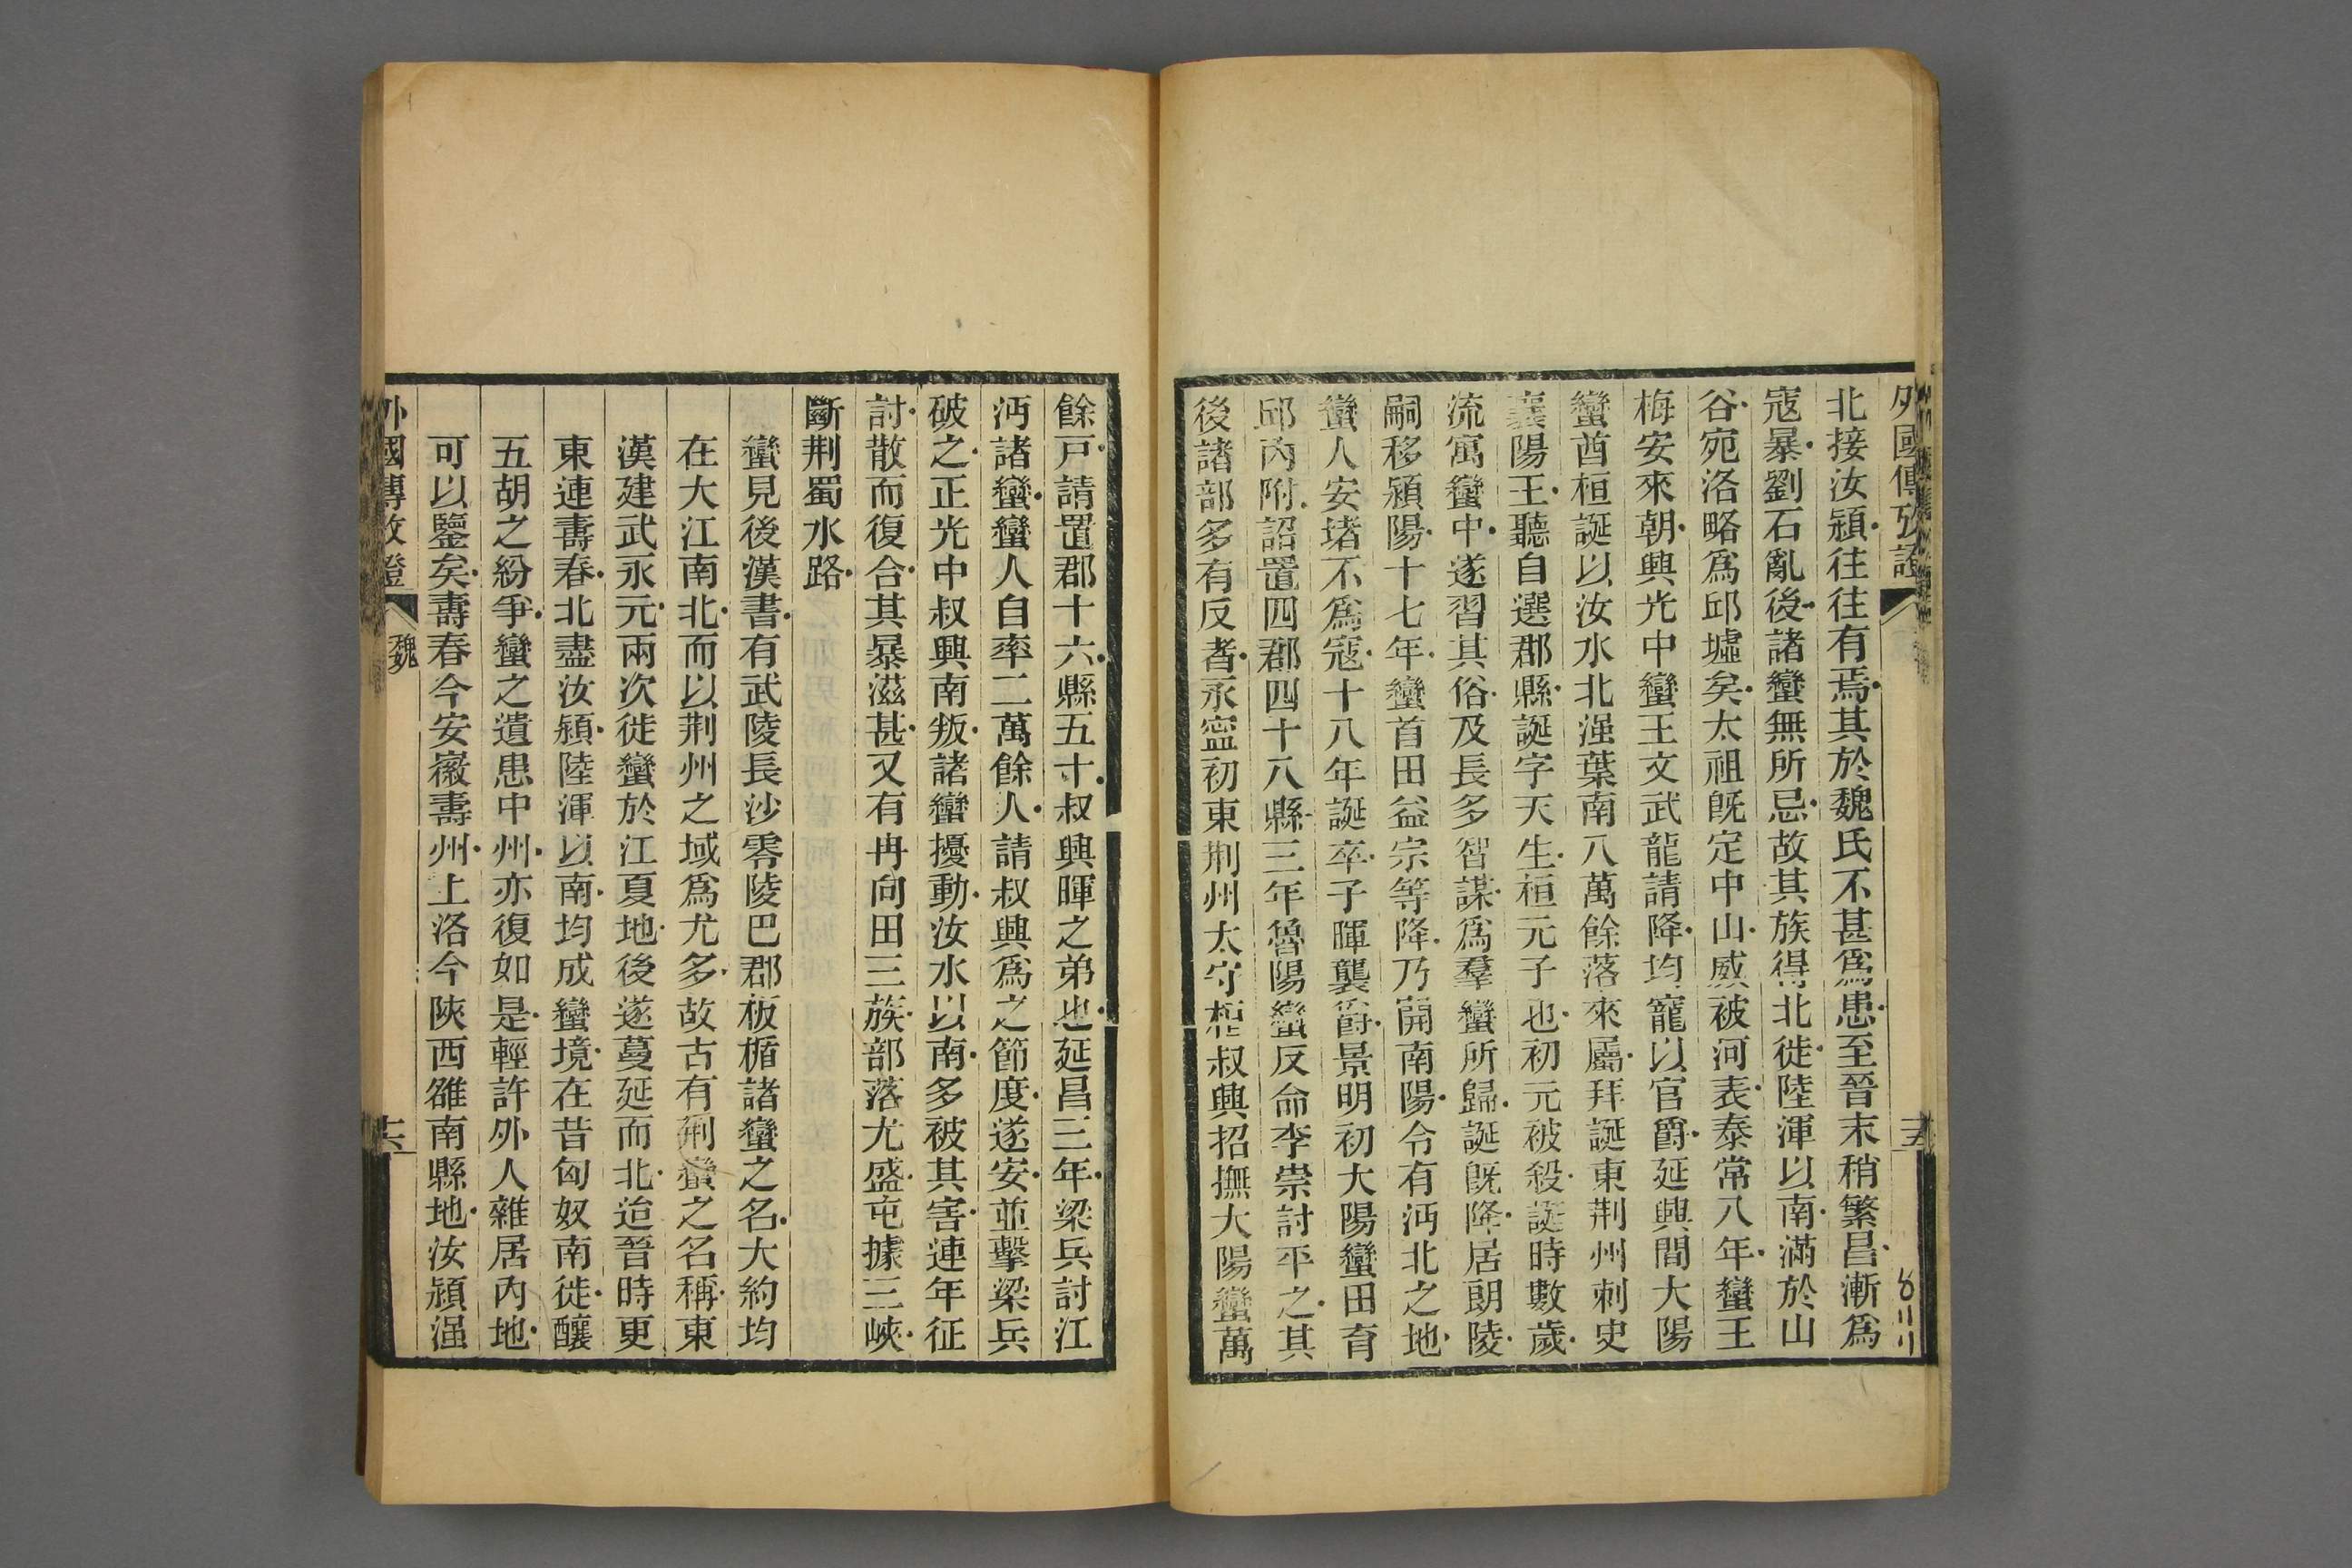 外國傳攷證
北接汝潁往往有焉其於魏氏不甚爲患至晉末稍繁昌漸爲
寇暴劉石亂後諸蠻無所忌故其族得北徙陸渾以南滿於山
谷宛洛略爲邱墟矣太祖旣定中山威被河表泰常八年蠻王
梅安來朝興光中蠻王文武龍請降均寵以官爵延興間大陽
蠻酋桓誕以汝水北滍葉南八萬餘落來屬拜誕東荆州刺史
襄陽王聽自選郡縣誕字天生桓元子也初元被殺誕時數歲
流寓蠻中遂習其俗及長多智謀爲羣蠻所歸誕旣降居朗陵
嗣移潁陽十七年蠻首田益宗等降乃開南陽令有沔北之地
蠻人安堵不爲寇十八年誕卒子暉襲爵景明初大陽蠻田育
邱內附詔置四郡四十八縣三年魯陽蠻反命李崇討平之其
後諸部多有反者永寧初東荆州太守桓叔興招撫大陽蠻萬
餘戸請置郡十六縣五十叔興暉之弟也延昌三年梁兵討江
沔諸蠻蠻人自率二萬餘人請叔興爲之節度遂安並擊梁兵
破之正光中叔興南叛諸蠻擾動汝水以南多被其害連年征
討散而復合其暴滋甚又有冉向田三族部落尤盛屯據三峽
斷荆蜀水路
蠻見後漢書有武陵長沙零陵巴郡板楯諸蠻之名大約均
在大江南北而以荆州之域爲尤多故古有荆蠻之名稱東
漢建武永元兩次徙蠻於江夏地後遂蔓延而北迨晉時更
東連壽春北盡汝潁陸渾以南均成蠻境在昔匈奴南徙釀
五胡之紛爭蠻之遺患中州亦復如是輕許外人雜居內地
可以鑒矣壽春今安徽壽州上洛今陝西雒南縣地汝潁滍
外國傳攷證
魏
十六